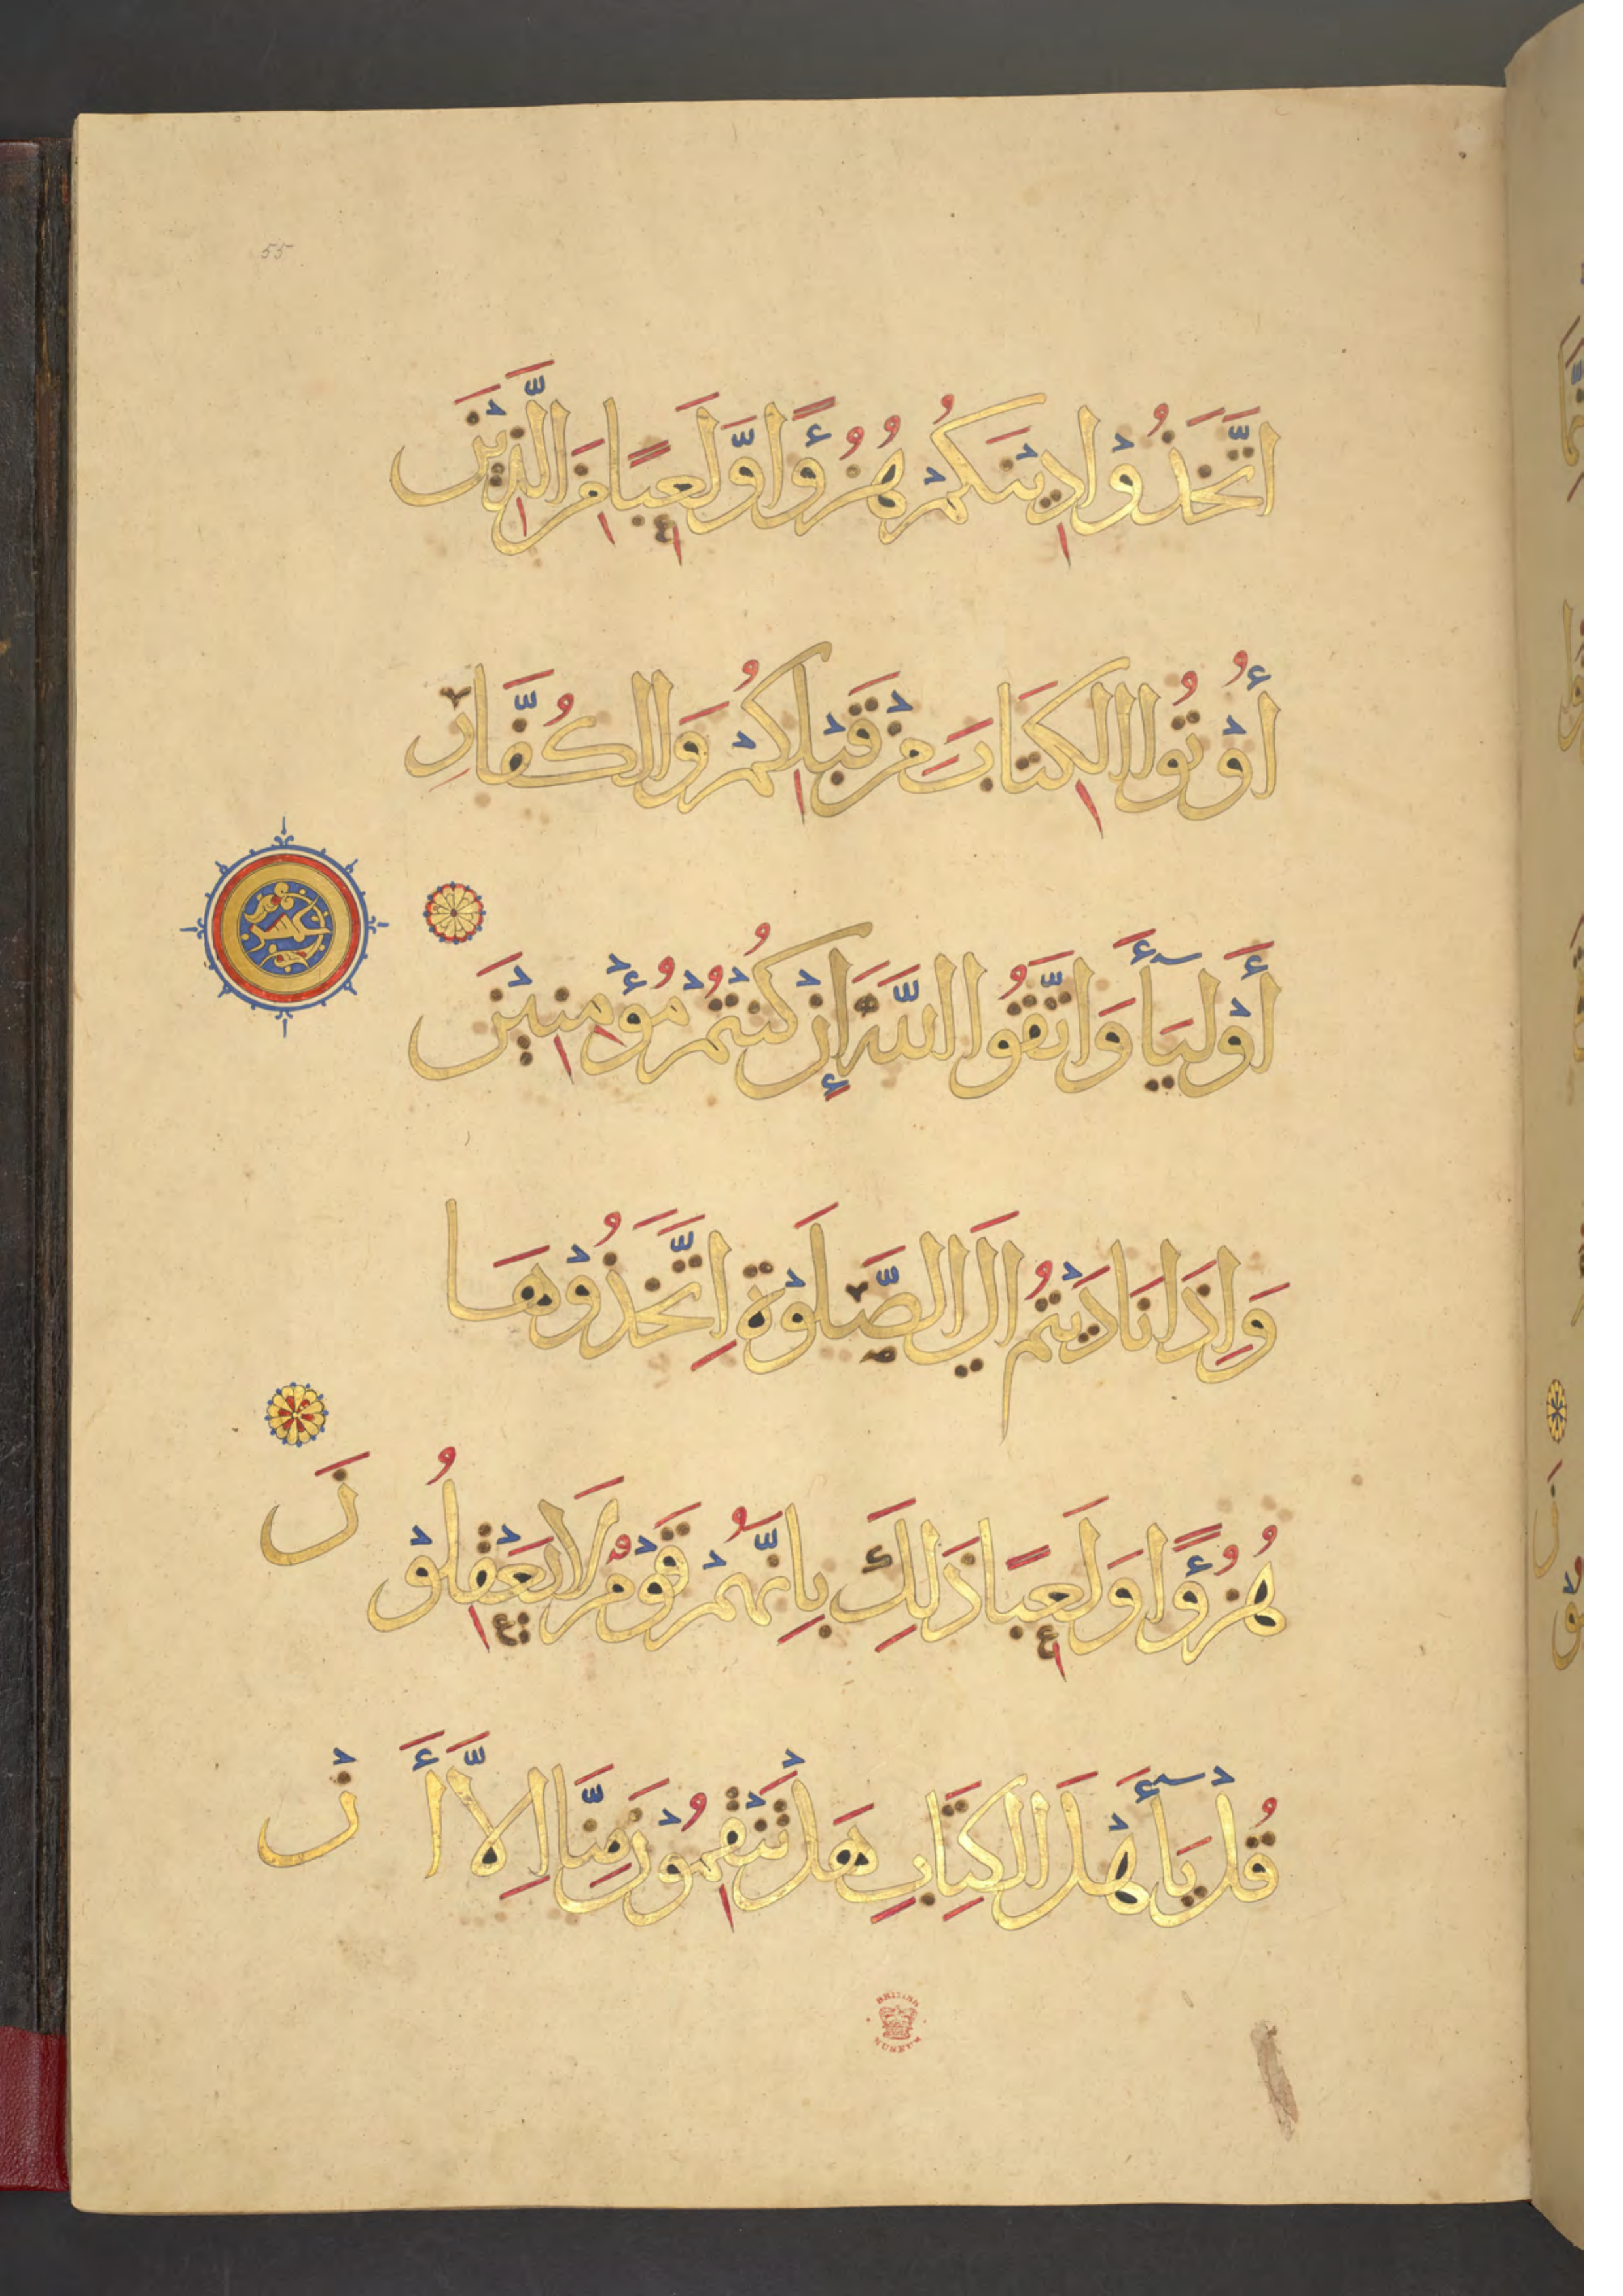 55
اتَّخَذُوْا دِيْنَكُمْ هُزُؤًا وَّلَعِبًا مِنَ الَّذِيْنَ
أُوْتُوا الكِتَابَ مِنْ قَبْلِكُمْ وَالكُفَّارِ
أَوْلِيَآءَ وَاتَّقُوا اللَّهَ إِنْ كُنْتُمْ مُؤْمِنِيْنَ
وَاِذَا نَادَيْتُمْ الَي الصَّلَوٰةِ اتَّخَذُوْهَا
هُزُؤًا وَلَعِبًا ذَلِكَ بِانَّهُمْ قَوْمٌ لَا يَعْقِلُوْنَ
قُلْ يَآأَهْلَ الكِتَابِ هَلْ تَنْقِمُوْنَ مِنَّا اِلاَّ أَنْ
BRITISH
MUSEUM